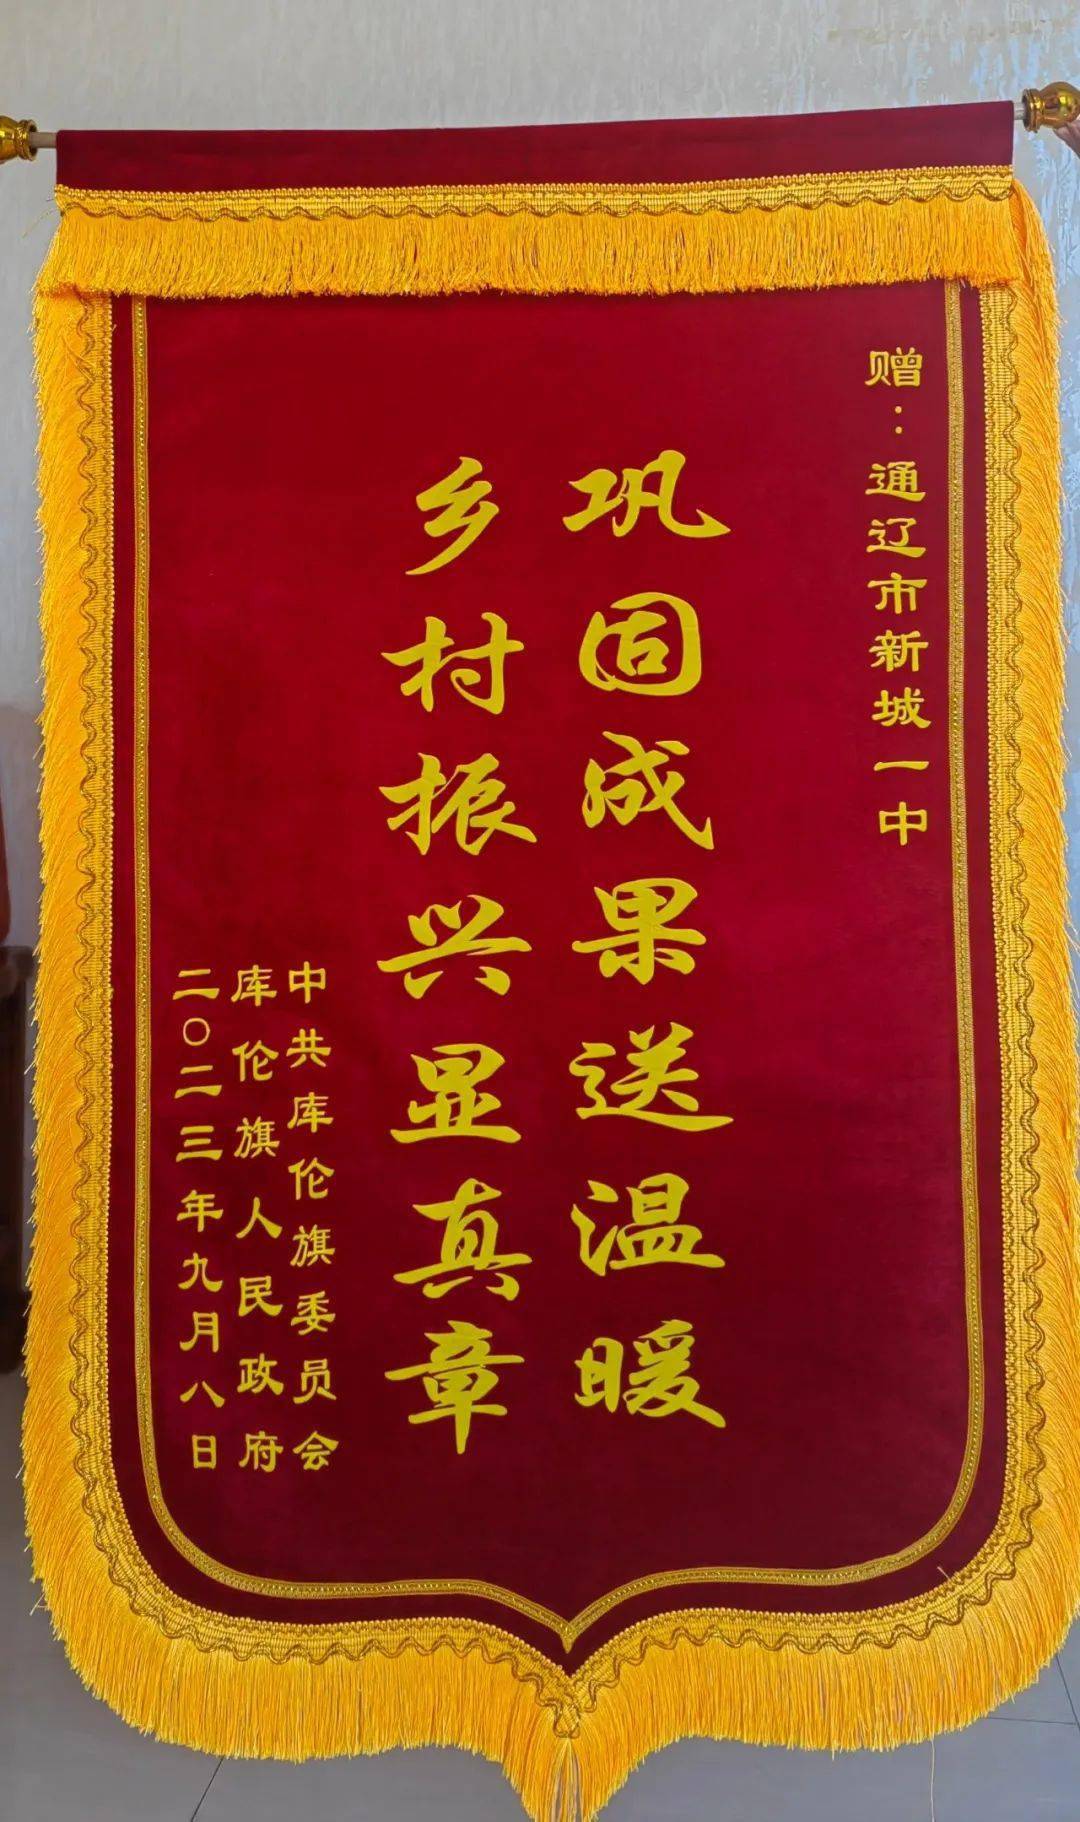 赠：通辽市新城一中
巩固成果送温暖
乡村振兴显真章
中共库伦旗委员会
库伦旗人民政府
二〇二三年九月八日